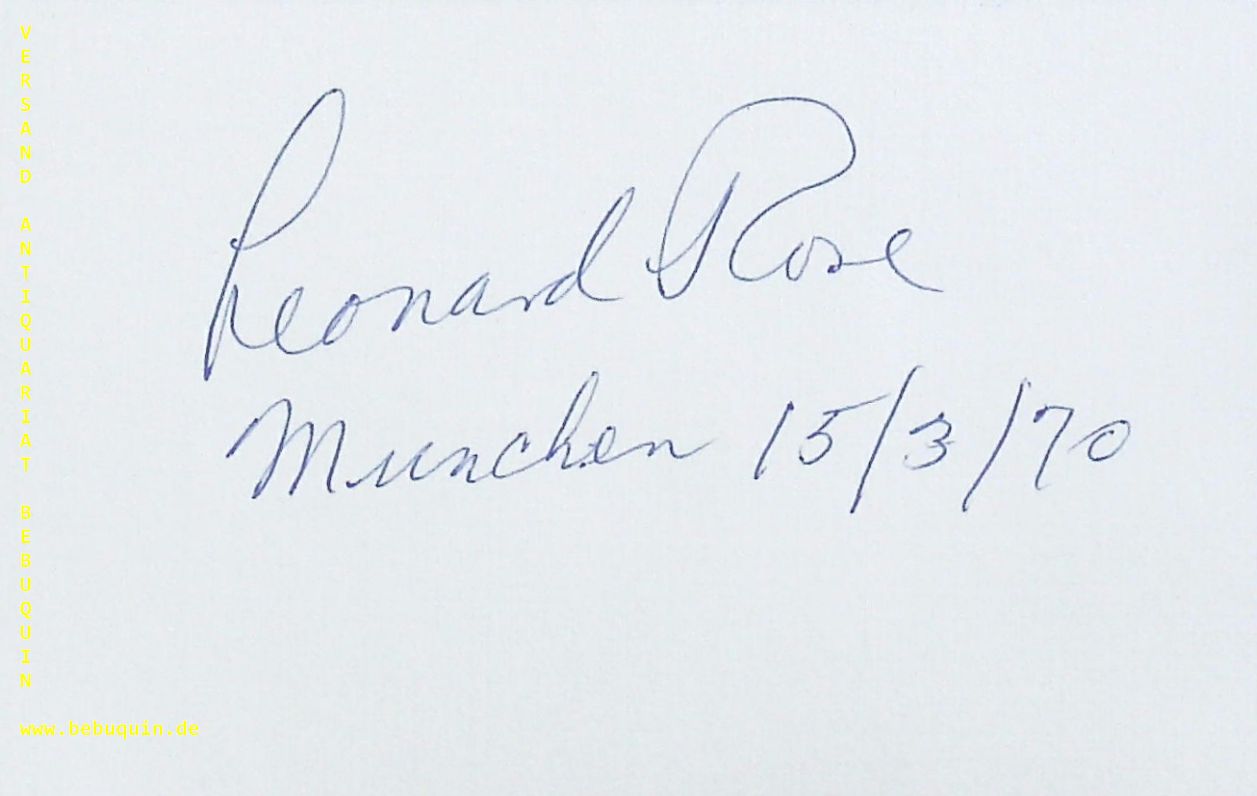 VERSAND ANTIQUARIAT BEBUQUIN
Leonard Rose
Munchen 15/3/70
www.bebuquin.de